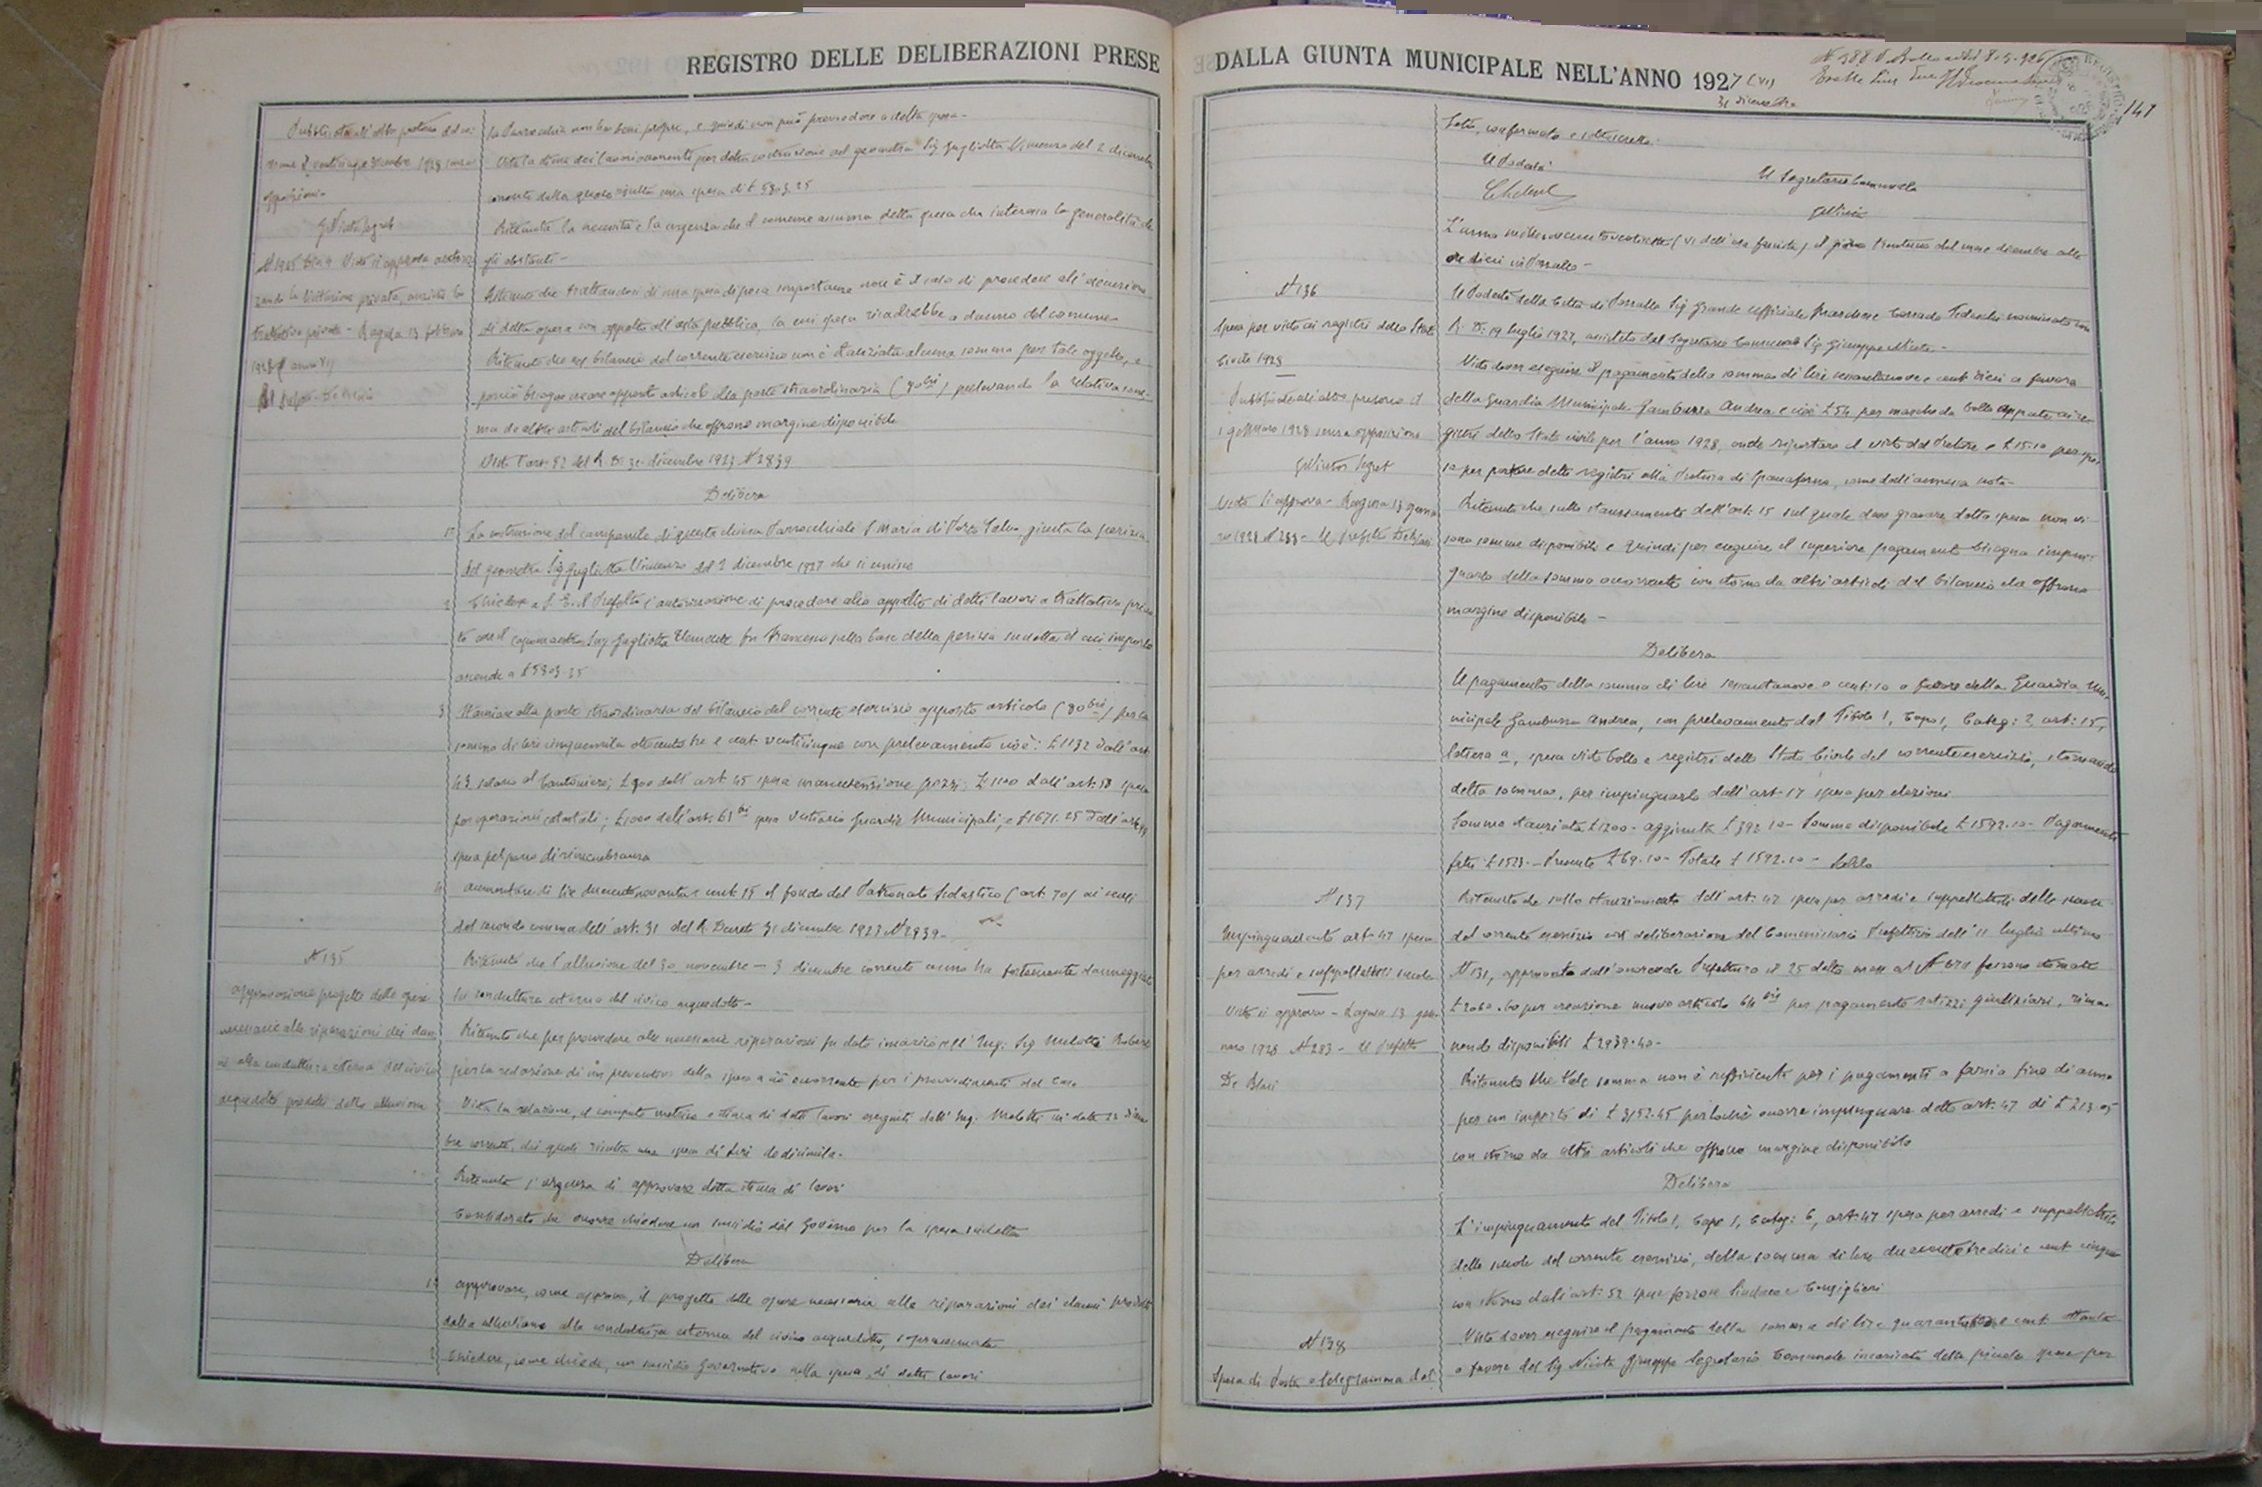 REGISTRO DELLE DELIBERAZIONI PRESE
la Parrocchia non ha beni propri, e quindi non può provvedere a detta spesa.
Vista la stima dei lavori occorrenti per detta costruzione del geometra Sig Gugliotta Vincenzo del 2 dicembre
dalla quale risulta una spesa di £ 5803.25
Ritenuta la necessità e la urgenza che il comune assuma detta spesa che interessa la generalità de
gli abitanti -
Ritenuto che trattandosi di una spesa di poca importanza non è il caso di procedere all'
di detta opera con appalto all'asta pubblica, la cui spesa ricadrebbe a danno del comune
Ritenuto che nel bilancio del corrente esercizio non è stanziata alcuna somma per tale oggetto, e
perciò bisogna creare apposito articolo alla parte straordinaria (80 bis) prelevando la relativa som-
ma da altri articoli del bilancio che offrono margine disponibile
Visto l'art. 52 del R. D. 30 dicembre 1923 N 2839
Delibera
1° La costruzione del campanile di questa chiesa Parrocchiale S Maria di Porto Salvo, giusta la perizia
del geometra Sig Gugliotta Vincenzo del 2 dicembre 1927 che si unisce
2 Chiedere a S. E. il Prefetto l'autorizzazione di procedere allo appalto di detti lavori a trattativa priva
ta con il capomastro Sig Gugliotta Clemente fu Francesco sulla base della perizia sudetta il cui importo
ascende a £ 5803.25
3 Stanziare alla parte straordinaria del bilancio del corrente esercizio apposito articolo (80 bis) per la
somma di lire cinquemila ottocento tre e cent. venticinque con prelevamento cioè: £ 1132 dall'art
43 salario al Cantoniere; £ 900 dall'art 45 spesa manutenzione pozzi; £ 1100 dall'art. 58 spesa
per operazioni catastali; £ 1000 dall'art. 63 bis spesa Vestiario Guardie Municipali, e £ 1671.25 dall'art
spesa pel parco di rimembranza
4 Aumentare di lire duecento novanta e cent. 15 il fondo del Patronato Scolastico (art. 70) ai sensi
del secondo comma dell'art. 31 del R Decreto 30 dicembre 1923 N 2839 -
N 135
Approvazione progetto delle opere
necessarie alle riparazioni dei dan
ni alla conduttura esterna del civico
acquedotto prodotti dalla alluvione
Ritenuto che l'alluvione del 30 novembre - 3 dicembre corrente anno ha fortemente danneggiato
la conduttura esterna del civico acquedotto -
Ritenuto che per provvedere alle necessarie riparazioni fu dato incarico all'Ing: Sig
per la redazione di un preventivo della spesa a ciò occorrente per i provvedimenti del caso
Vista la relazione, il computo metrico e stima di detti lavori eseguiti dall'Ing. in data 22 dicem
bre corrente, dai quali risulta una spesa di lire dodicimila.
Ritenuta l'urgenza di approvare detta stima di lavori
Considerato che occorre chiedere un sussidio dal Governo per la spesa sudetta
Delibera
1° Approvare, come approva, il progetto delle opere necessarie alle riparazioni dei danni prodotti
dalla alluvione alla conduttura esterna del civico acquedotto, sopracennata
2 Chiedere, come chiede, un sussidio governativo nella spesa di detti lavori
DALLA GIUNTA MUNICIPALE NELL'ANNO 1927 (VI)
31 dicembre
141
Letto, confermato e sottoscritto.
Il Podestà
Il Segretario Comunale
L'anno millenovecentoventisette (VI dell'era fascista) il giorno trentuno del mese dicembre alle
ore dieci in Pozzallo -
N 136
Spesa per visto ai registri dello Stato
Civile 1928
Pubblicato all'albo pretorio il
1 gennaio 1928 senza opposizione
Visto si approva - Ragusa 13 genna
io 1928 N 283 - Il Prefetto De Blasi
Il Podestà della Città di Pozzallo Sig Grande Ufficiale Marchese Corrado Tedeschi nominato con
R. D. 19 luglio 1927, assistito dal Segretario Comunale Sig Giuseppe Nicita -
Visto dover eseguire il pagamento della somma di lire sessantanove e cent dieci a favore
della Guardia Municipale Gambuzza Andrea e cioè £ 54 per marche da bollo apposte ai re
gistri dello Stato civile per l'anno 1928, onde riportare il visto del Pretore e £ 15.10 per spe
se per portare detti registri alla Pretura di Spaccaforno, come dall'annessa nota -
Ritenuto che sullo stanziamento dell'art: 15 sul quale deve gravare detta spesa non vi
sono somme disponibili e quindi per eseguire il superiore pagamento bisogna impin-
guarlo della somma occorrente con storno da altri articoli del bilancio che offrono
margine disponibile -
Delibera
Il pagamento della somma di lire sessantanove e cent. 10 a favore della Guardia Mu-
nicipale Gambuzza Andrea, con prelevamento dal Titolo 1, Capo 1, Categ: 2, art: 15,
lettera a, spesa visto bollo e registri dello Stato Civile del corrente esercizio, stornando
detta somma, per impinguarlo dall'art. 17 spesa per elezioni
Somma stanziata £ 1200 - aggiunta £ 392.10 - Somma disponibile £ 1592.10 - Pagamenti
fatti £ 1523 - Presente £ 69.10 - Totale £ 1592.10 - Saldo
N 137
Impinguamento art. 47 spesa
per arredi e suppellettili scuole
Visto si approva - Ragusa 13 gen-
naio 1928 N 283 - Il Prefetto
De Blasi
Ritenuto che sullo stanziamento dell'art. 47 spesa per arredi e suppellettili delle scuole
del corrente esercizio con deliberazione del Commissario Prefettizio dell'11 luglio ultimo
N 131, approvata dall'onorevole Prefettura il 25 detto mese al N furono stornate
£ 2060.60 per creazione nuovo articolo 64 bis per pagamento ratizzi giudiziari, rima-
nendo disponibili £ 2939.40 -
Ritenuto che tale somma non è sufficiente per i pagamenti a farsi a fine di anno
per un importo di £ 3152.45 perlochè occorre impinguare detto art. 47 di £ 213.05
con storno da altri articoli che offrono margine disponibile
Delibera
L'impinguamento del Titolo 1, Capo 1, Categ: 6, art. 47 spesa per arredi e suppellettili
delle scuole del corrente esercizio, della somma di lire duecentotredici e cent cinque
con storno dall'art. 52 spese forzose Sindaco e Consiglieri
N 138
Spesa di Posta e telegramma del
Visto dover eseguire il pagamento della somma di lire e cent
a favore del Sig Nicita Giuseppe Segretario Comunale incaricato delle piccole spese per